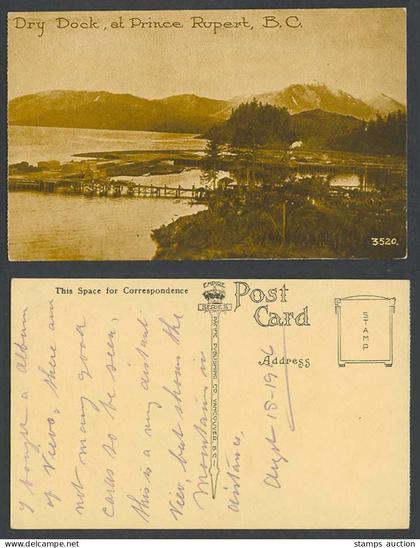 Dry Dock, at Prince Rupert, B.C.
3520.
This Space for Correspondence
EMPIRE
SERIES
PACIFIC PUBLISHING CO. VANCOUVER, B.C.
Post
Card
Address
STAMP
I bought a album
of Views, there are
not many good
cards to be seen,
this is a very distant
View, but shows the
Mountains in
distance.
Augst 18-19
www.stamps-auction.com